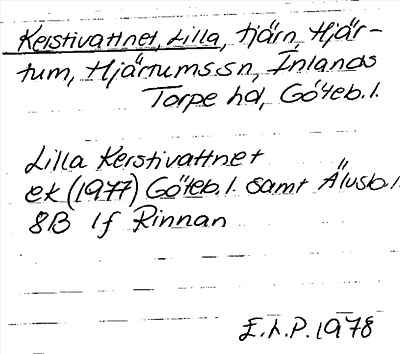 Kerstivattnet, Lilla, tjärn, Hjär-
tum, Hjärtums sn, Inlands
Torpe hd, Göteb. l.
Lilla Kerstivattnet
ek (1977) Göteb. l. samt Älvsb. l
8B 1f Rinnan
E.L.P. 1978